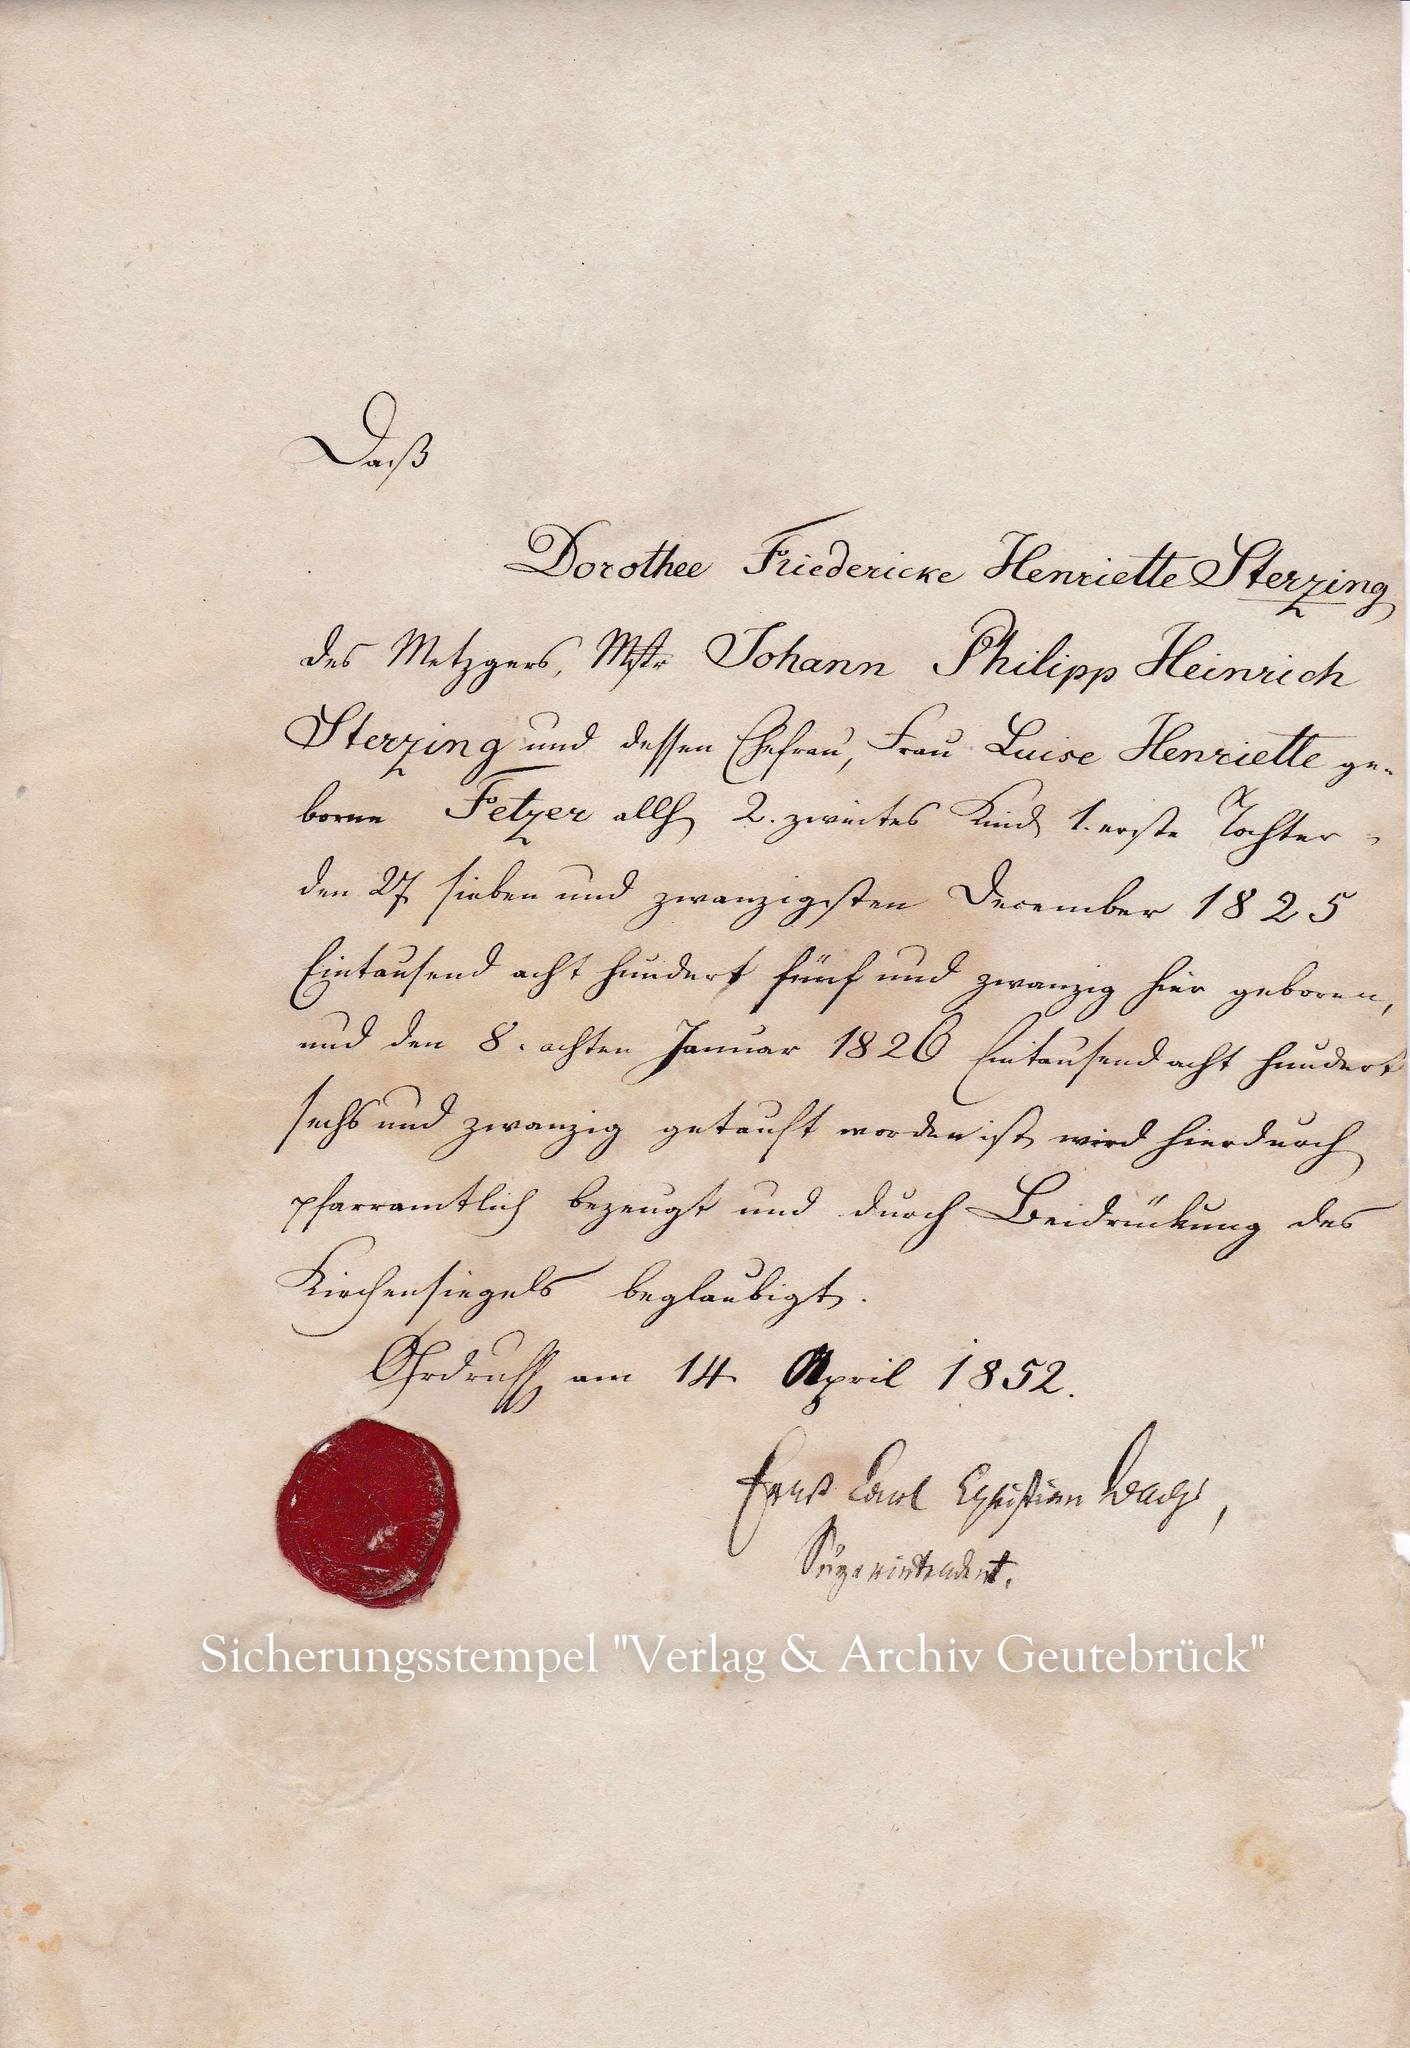 Daß
Dorothee Friedericke Henriette Sterzing
des Metzgers, Mstr Johann Philipp Heinrich
Sterzing und dessen Ehefrau, Frau Luise Henriette ge-
borne Fetzer allh 2. zweites Kind 1. erste Tochter
den 27 sieben und zwanzigsten December 1825
Eintausend acht hundert fünf und zwanzig hier geboren,
und den 8. achten Januar 1826 Eintausend acht hundert
sechs und zwanzig getauft worden ist, wird hierdurch
pfarramtlich bezeugt und durch Beidrückung des
Kirchensiegels beglaubigt.
Ohrdruff am 14 April 1852.
Ernst Carl Christian
Superintendent.
Sicherungsstempel "Verlag & Archiv Geutebrück"